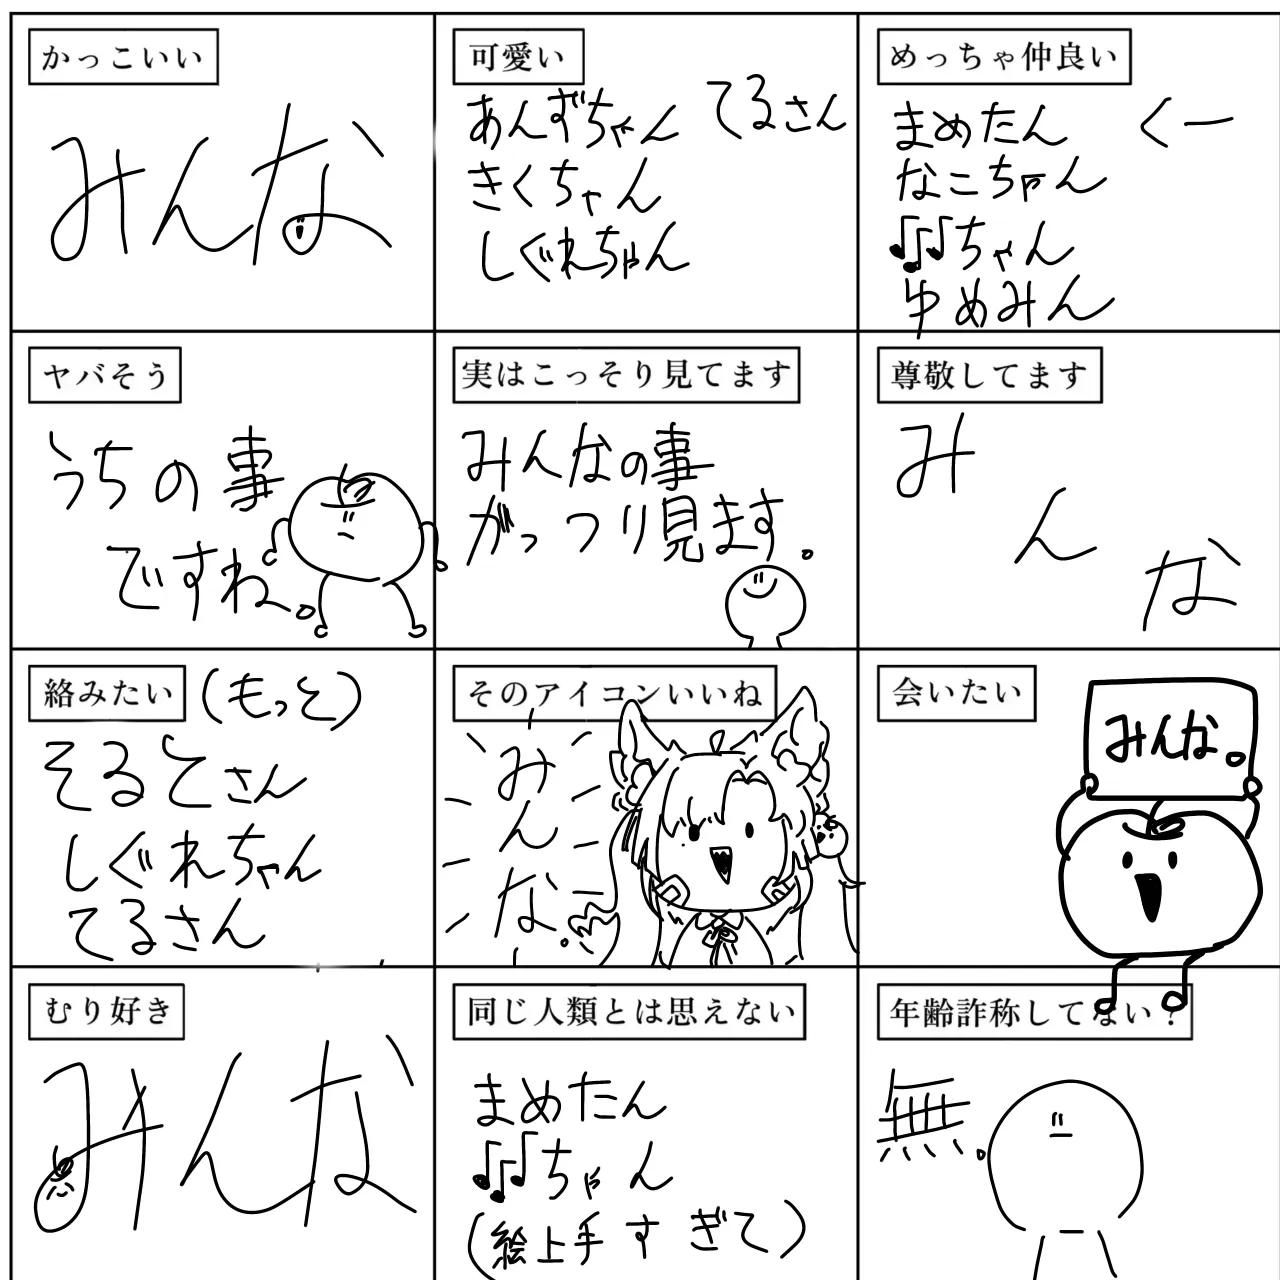 かっこいい
みんな
可愛い
あんずちゃん てるさん
きくちゃん
しぐれちゃん
めっちゃ仲良い
まめたん くー
なこちゃん
♫♪ちゃん
ゆめみん
ヤバそう
うちの事
ですね。
実はこっそり見てます
みんなの事
がっつり見ます。
尊敬してます
み
ん
な
絡みたい (もっと)
そるとさん
しぐれちゃん
てるさん
そのアイコンいいね
みんな。
会いたい
みんな。
むり好き
みんな
同じ人類とは思えない
まめたん
♫♪ちゃん
(絵上手すぎて)
年齢詐称してない?
無。